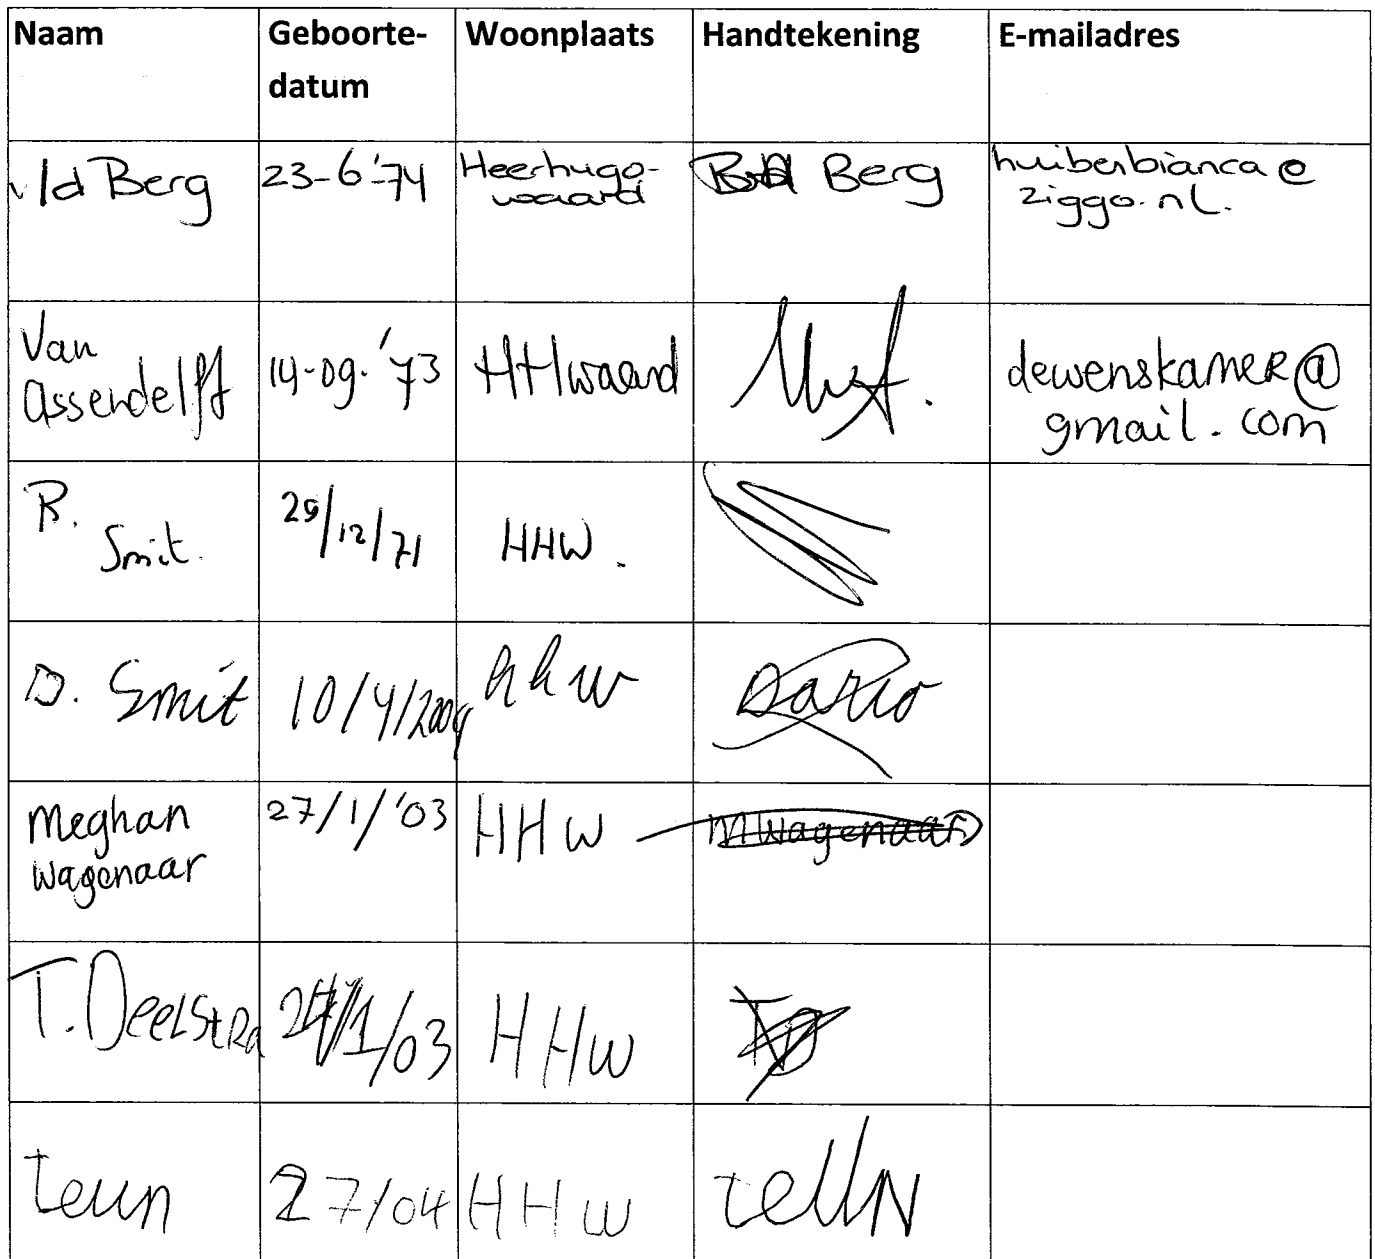 Naam Geboorte- Woonplaats Handtekening E-mailadres
datum
v/d Berg 23-6-'74 Heerhugo- Berg huiberbianca@
waard ziggo.nl.
Van
Assendelft 14-09-'73 HHwaard dewenskamer@
gmail.com
R. Smit. 29/12/71 HHW.
D. Smit 10/4/2004 hhw Dario
Meghan 27/1/'03 HHW MWagenaar
Wagenaar
T. Deelstra /1/03 HHW TD
teun 27/04 HHW